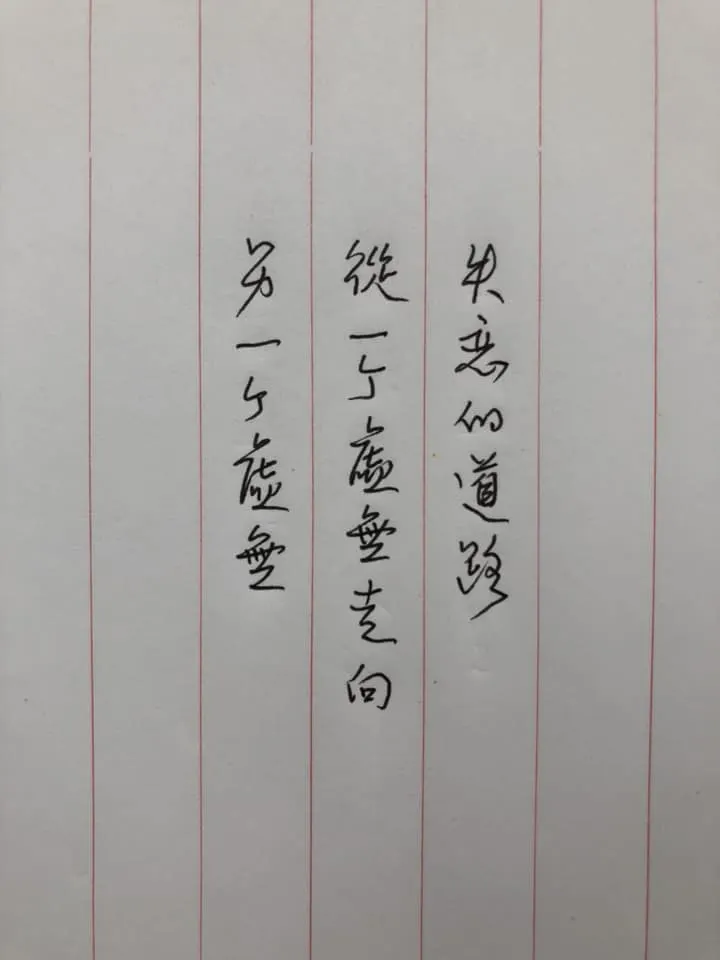 失恋的道路
從一个虛無走向
另一个虛無